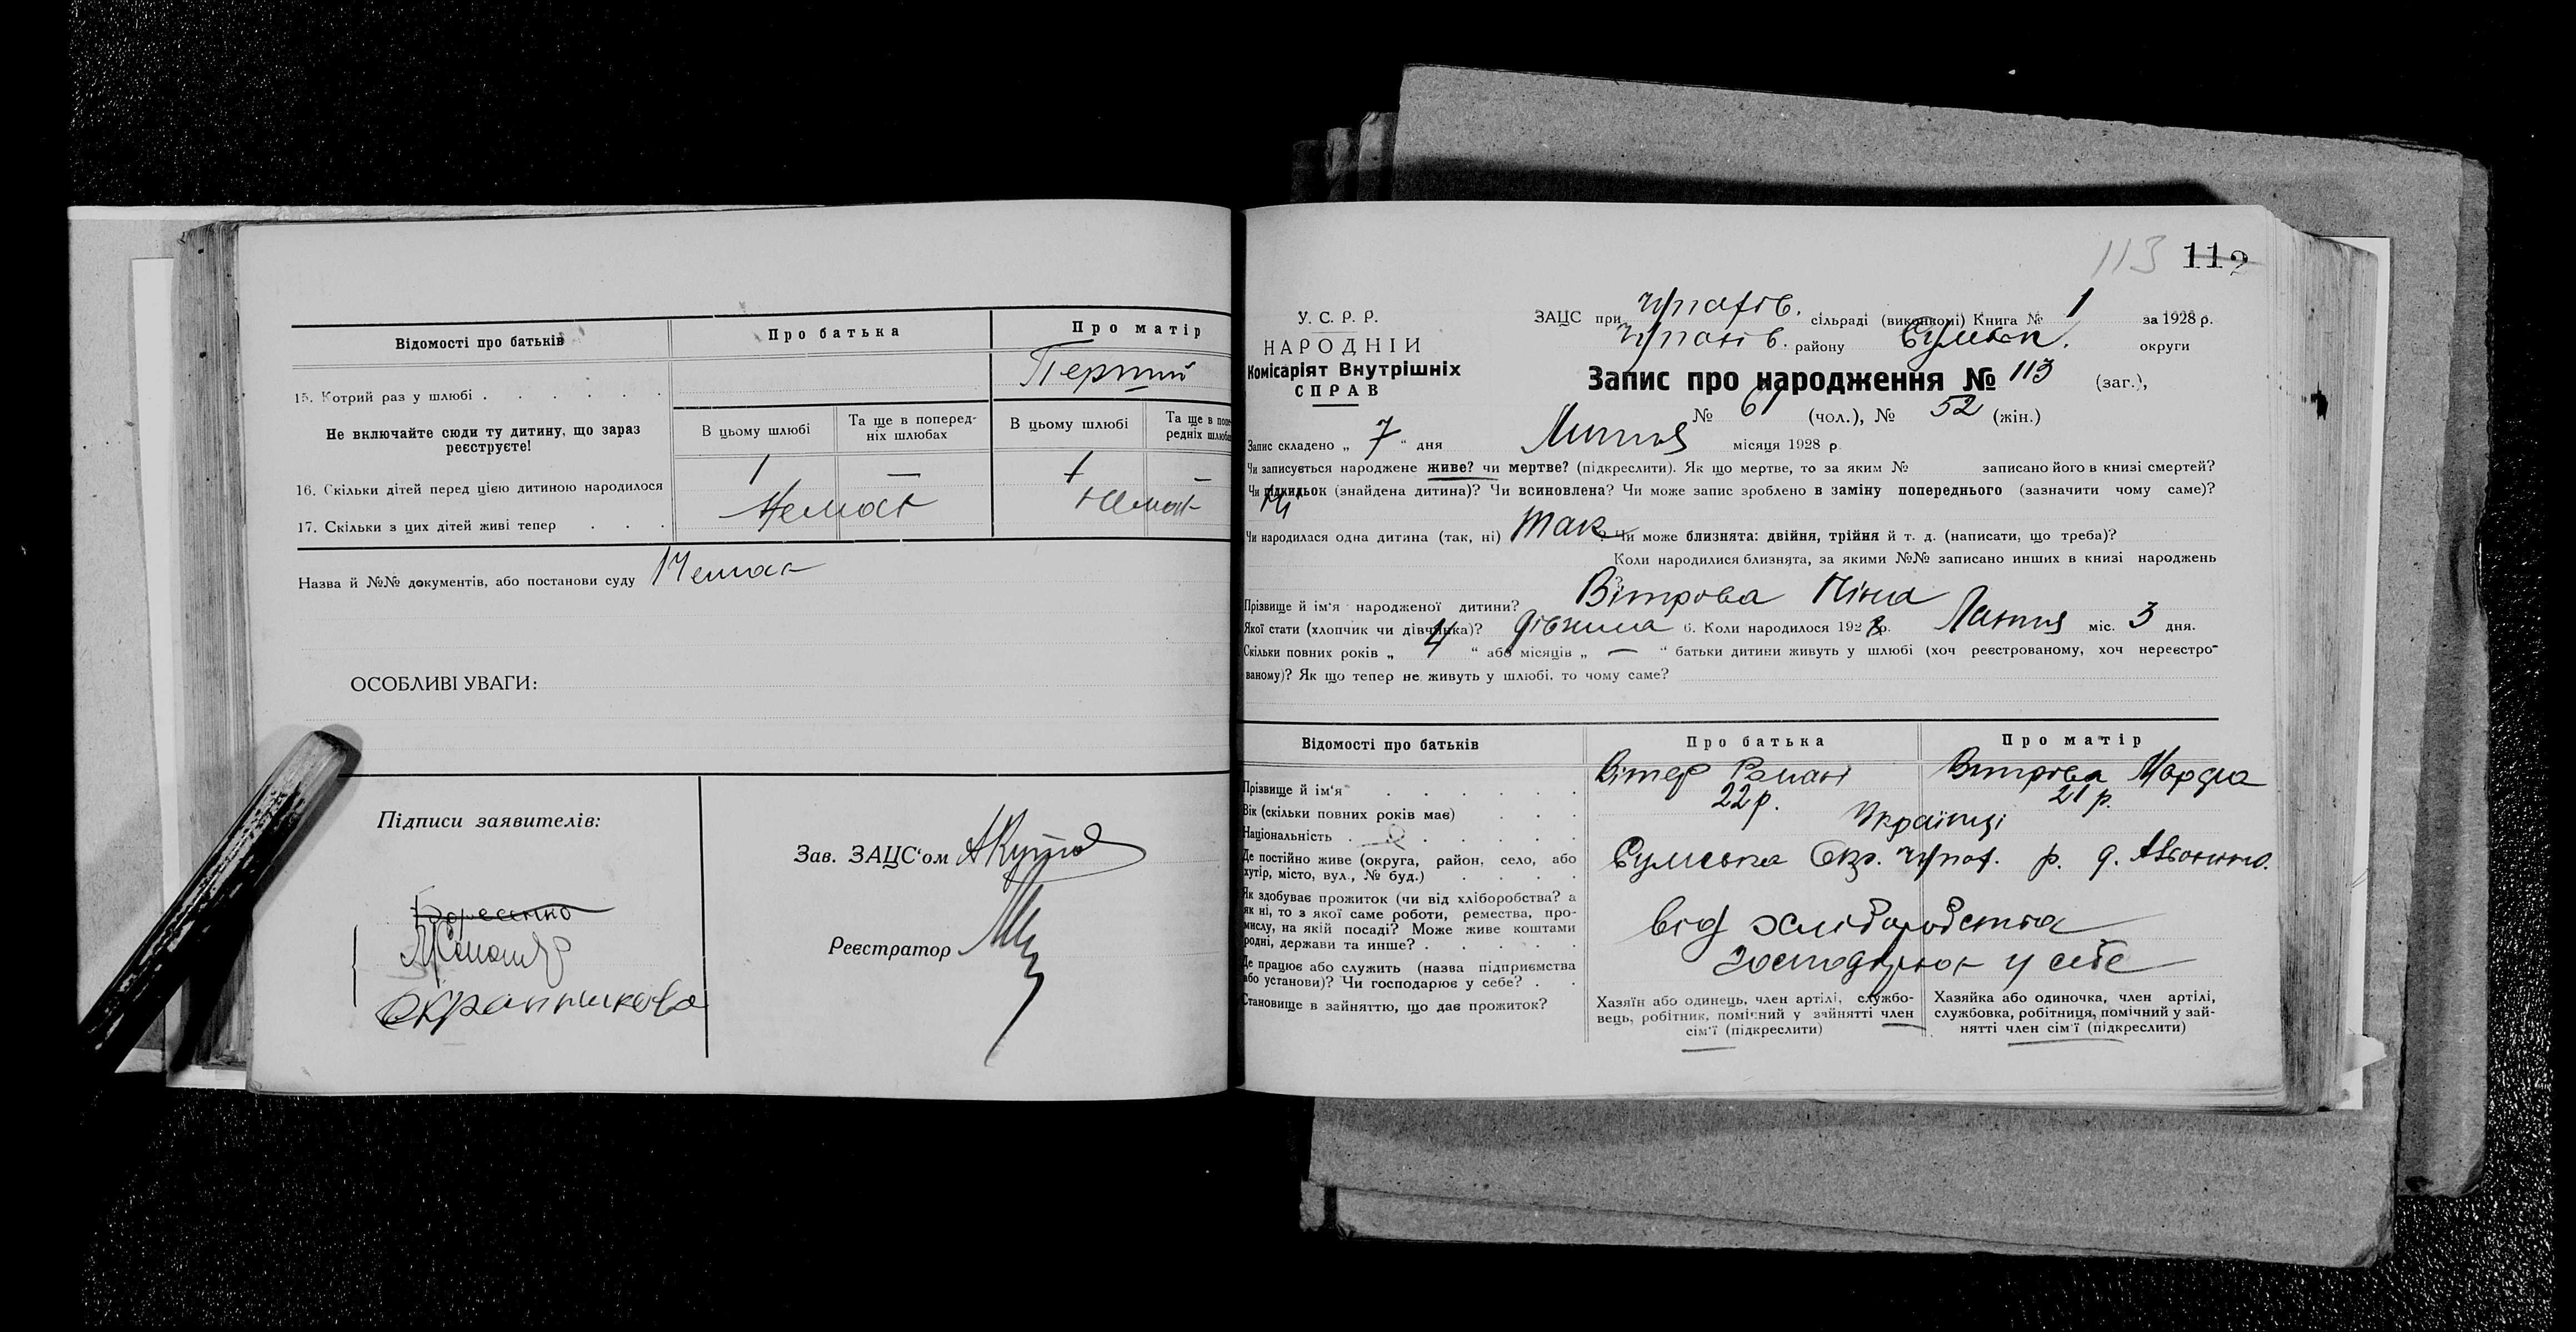 Відомості про батьків
Про батька
Про матір
15. Котрий раз у шлюбі
Перший
Не включайте сюди ту дитину, що зараз реєструєте!
В цьому шлюбі
Та ще в поперед-
ніх шлюбах
В цьому шлюбі
Та ще в попе
редніх шлюбах
16. Скільки дітей перед цією дитиною народилося
1 — 1 —
17. Скільки з цих дітей живі тепер
Немає
Немає
Назва й №№ документів, або постанови суду Немає
ОСОБЛИВІ УВАГИ:
Підписи заявителів:
Зав. ЗАЦС'ом
Реєстратор
113 112
У. С. Р. Р.
НАРОДНІЙ
Комісаріят Внутрішніх
СПРАВ
ЗАЦС при сільраді (виконкомі) Книга № 1 за 1928 р.
району Сумськ. округи
Запис про народження № 113 (заг.),
№ 61 (чол.), № 52 (жін.)
Запис складено „ 7 “ дня Липня місяця 1928 р.
Чи записується народжене живе? чи мертве? (підкреслити). Як що мертве, то за яким № записано його в книзі смертей?
Чи підкидьок (знайдена дитина)? Чи всиновлена? Чи може запис зроблено в заміну попереднього (зазначити чому саме)?
Ні
Чи народилася одна дитина (так, ні) Так ? Чи може близнята: двійня, трійня й т. д. (написати, що треба)?
Коли народилися близнята, за якими №№ записано инших в книзі народжень
?
Прізвище й ім'я народженої дитини? Вітрова Ніна
Якої стати (хлопчик чи дівчинка)? дівчина 6. Коли народилося 1928 р. Липня міс. 3 дня.
Скільки повних років „ 4 “ або місяців „ — “ батьки дитини живуть у шлюбі (хоч реєстрованому, хоч нереєстро-
ваному)? Як що тепер не живуть у шлюбі, то чому саме?
Відомості про батьків
Про батька
Про матір
Прізвище й ім'я
Вітер Роман
Вітрова Марфа
Вік (скільки повних років має)
22 р.
21 р.
Національність
Українці
Де постійно живе (округа, район, село, або
хутір, місто, вул., № буд.)
Сумська Окр. р.
Як здобуває прожиток (чи від хліборобства? а
як ні, то з якої саме роботи, ремества, про-
мислу, на якій посаді? Може живе коштами
родні, держави та инше?
від хліборобства
Де працює або служить (назва підприємства
або установи)? Чи господарює у себе?
Господарює у себе
Становище в зайняттю, що дає прожиток?
Хазяїн або одинець, член артілі, службо-
вець, робітник, помічний у зайнятті член
сім'ї (підкреслити)
Хазяйка або одиночка, член артілі,
службовка, робітниця, помічний у зай-
нятті член сім'ї (підкреслити)